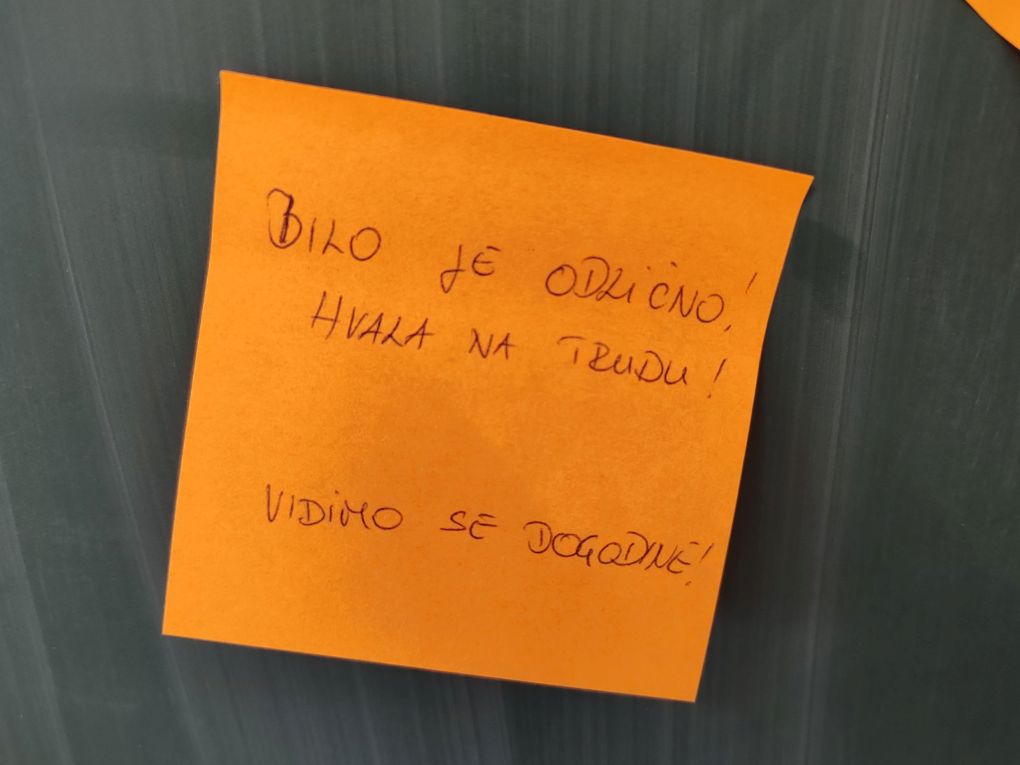 BILO JE ODLIČNO!
HVALA NA TRUDU!
VIDIMO SE DOGODINE!